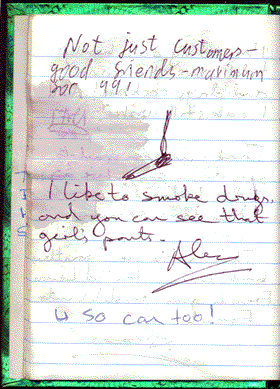 Not just customers -
good friends - maximum
for 99!
I like to smoke drugs,
and you can see that
girl's pants.
Alec
u so can too!